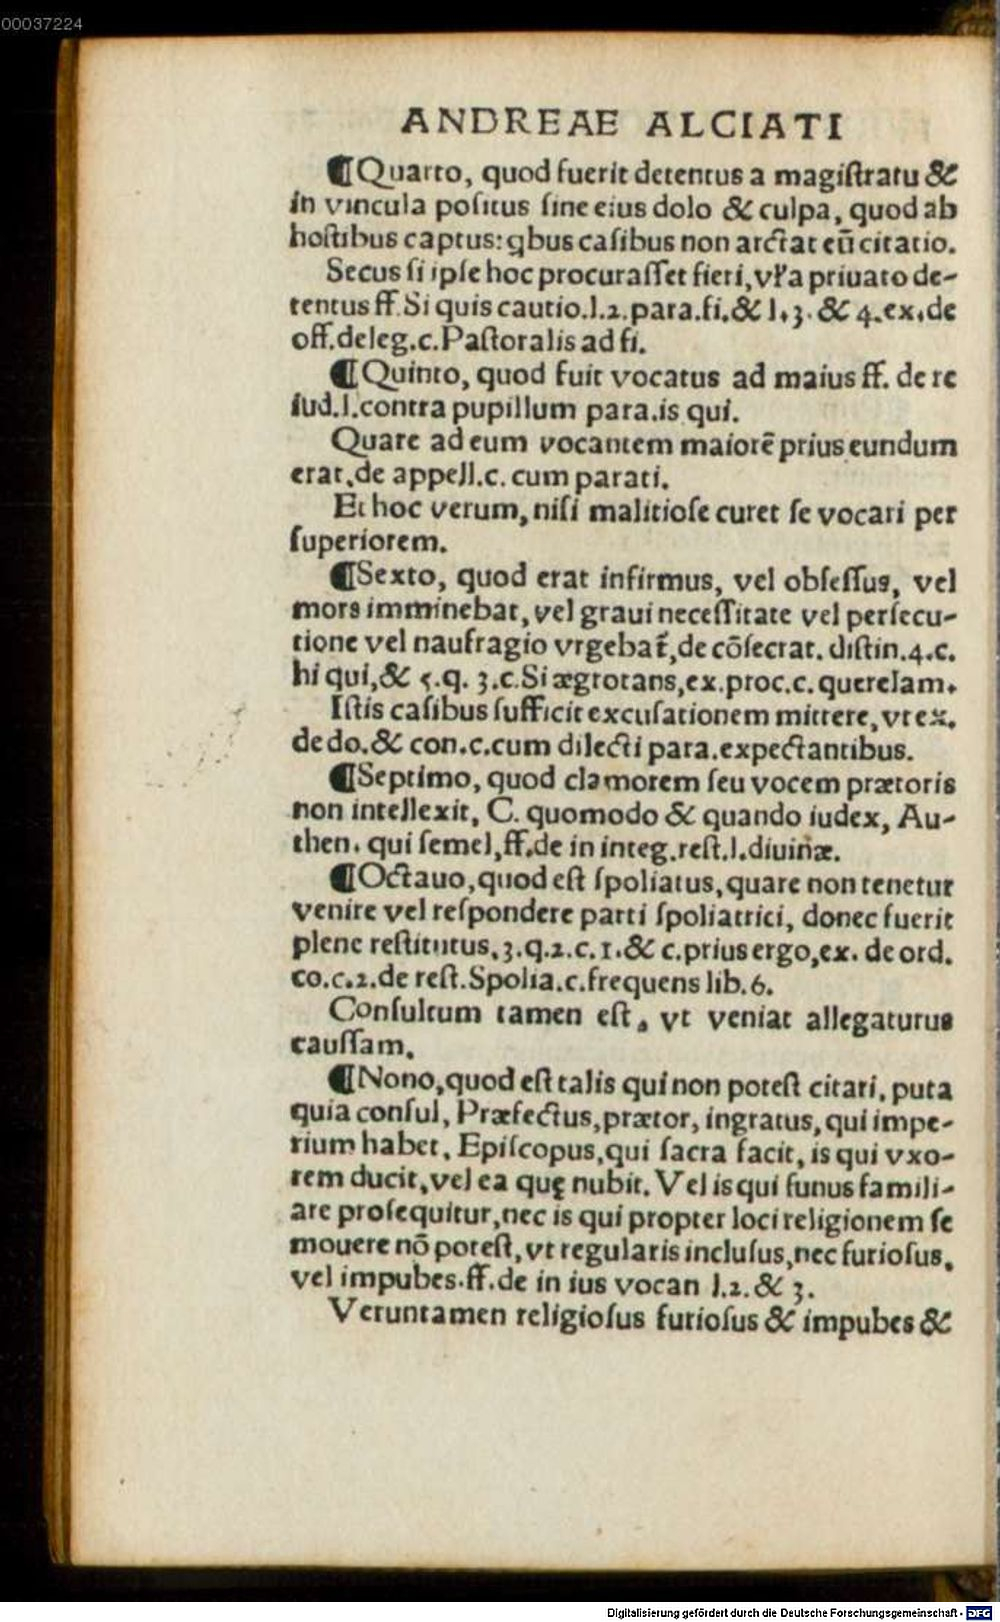 00037224
ANDREAE ALCIATI
¶Quarto, quod fuerit detentus a magiſtratu &
in vincula poſitus ſine eius dolo & culpa, quod ab
hoſtibus captus: qbus caſibus non arctat eū citatio.
Secus ſi ipſe hoc procuraſſet fieri, vľa priuato de-
tentus ff. Si quis cautio. l. 2. para. fi. & l. 3. & 4. ex. de
off. deleg. c. Paſtoralis ad fi.
¶Quinto, quod fuit vocatus ad maius ff. de re
iud. l. contra pupillum para. is qui.
Quare ad eum vocantem maiorē prius eundum
erat, de appell. c. cum parati.
Et hoc verum, niſi malitioſe curet ſe vocari per
ſuperiorem.
¶Sexto, quod erat infirmus, vel obſeſſus, vel
mors imminebat, vel graui neceſſitate vel perſecu-
tione vel naufragio vrgebat̃, de cōſecrat. diſtin. 4. c.
hi qui, & 5. q. 3. c. Si ægrotans, ex. proc. c. querelam.
Iſtis caſibus ſufficit excuſationem mittere, vt ex.
de do. & con. c. cum dilecti para. expectantibus.
¶Septimo, quod clamorem ſeu vocem prætoris
non intellexit, C. quomodo & quando iudex, Au-
then. qui ſemel, ff. de in integ. reſt. l. diuinæ.
¶Octauo, quod eſt ſpoliatus, quare non tenetur
venire vel reſpondere parti ſpoliatrici, donec fuerit
plene reſtitutus. 3. q. 2. c. 1. & c. prius ergo, ex. de ord.
co. c. 2. de reſt. Spolia. c. frequens lib. 6.
Conſultum tamen eſt, vt veniat allegaturus
cauſſam.
¶Nono, quod eſt talis qui non poteſt citari, puta
quia conſul, Præfectus, prætor, ingratus, qui impe-
rium habet, Epiſcopus, qui ſacra facit, is qui vxo-
rem ducit, vel ea quę nubit. Vel is qui funus famili-
are proſequitur, nec is qui propter loci religionem ſe
mouere nō poteſt, vt regularis incluſus, nec furioſus,
vel impubes. ff. de in ius vocan l. 2. & 3.
Veruntamen religioſus furioſus & impubes &
Digitalisierung gefördert durch die Deutsche Forschungsgemeinschaft - DFG